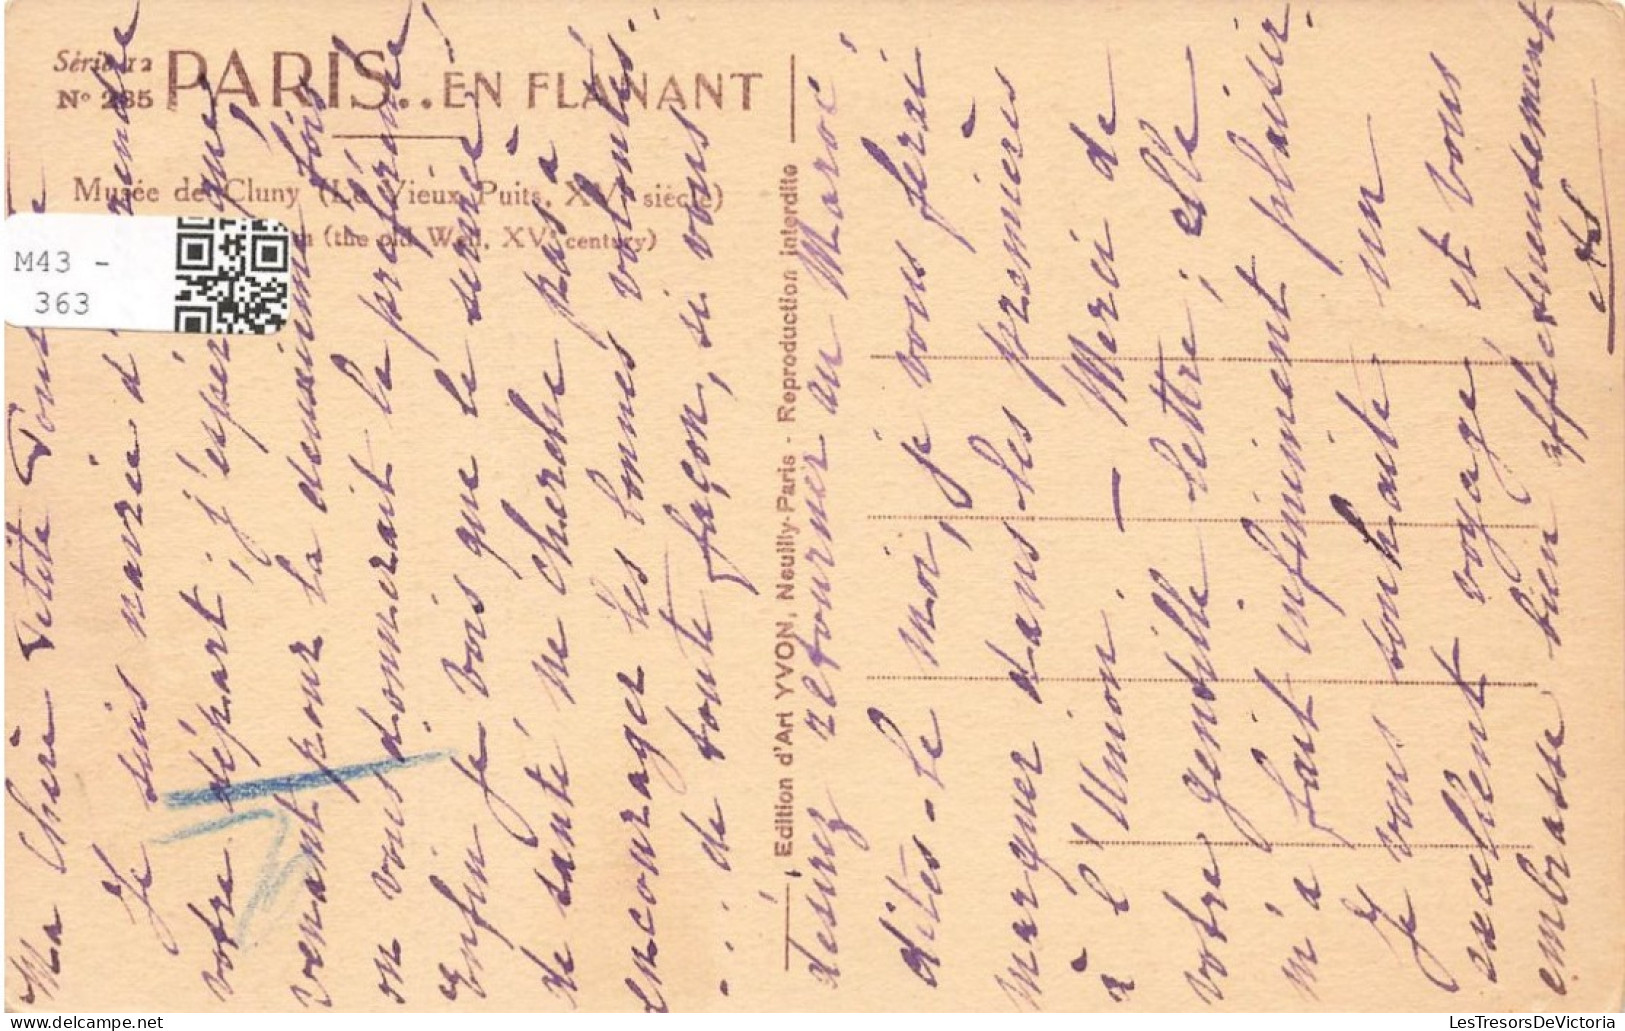 Série 12
N° 285
PARIS.. EN FLANANT
Musée de Cluny (Le Vieux Puits, XVe siècle)
(the old Well, XVe century)
M43 -
363
Edition d'Art YVON, Neuilly-Paris - Reproduction interdite
Ma Chère Petite
Je suis navrée d'
votre départ ; j'espérais que
venant pour la deuxième fois
on vous donnerait la préférence
Enfin je vois que le service
de santé ne cherche pas à
encourager les bonnes volontés.
... de toute façon, si vous
désirez retourner au Maroc
dites-le moi, je vous ferai
marquer dans les premières
à l'Union. - Merci de
votre gentille lettre ; elle
m'a fait infiniment plaisir.
Je vous souhaite un
excellent voyage, et vous
embrasse bien affectueusement
LesTresorsDeVictoria
delcampe.net